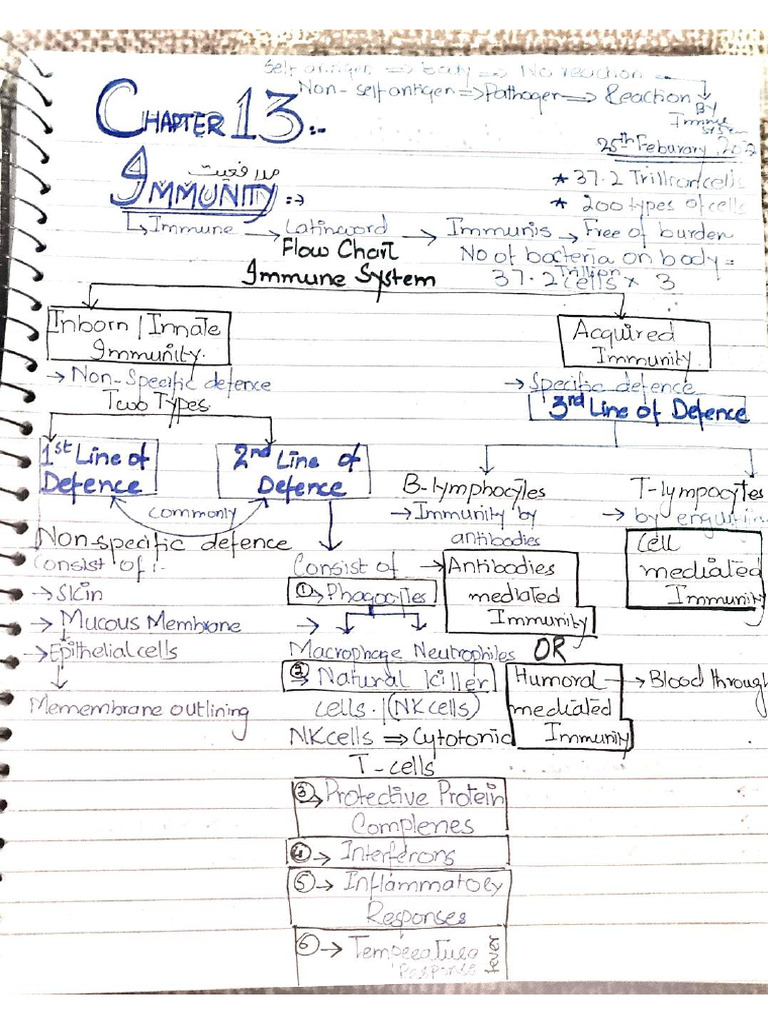 Self antigen ⇒ body ⇒ No reaction
Non-self antigen ⇒ Pathogen ⇒ Reaction → By
Immune
system
CHAPTER 13:-
25th Feburary,
مدافعیت
IMMUNITY :→
* 37.2 Trillion cells
* 200 types of cells
↳ Immune → Latin word → Immunis → Free of burden
Flow Chart
Immune System
No of bacteria on body =
37.2 Trillion cells × 3
Inborn / Innate
Immunity.
Acquired
Immunity.
→ Non-Specific defence
→ Specific defence
Two Types
3rd Line of Defence
1st Line of
Defence
2nd Line of
Defence
B-lymphocytes
T-lympocytes
commonly
→ Immunity by
antibodies
→ by
Non-specific defence
Consist of :-
Consist of
→ Antibodies
mediated
Immunity
Cell
mediated
Immunity
→ Skin
① → Phagocites
→ Mucous Membrane
→ Epithelial cells
Macrophage Neutrophiles
OR
Memembrane outlining
② → Natural killer
cells. (NK cells)
Humoral
mediated
Immunity
→ Blood through
NK cells ⇒ Cytotonic
T-cells
③ → Protective Protein
Complenes
④ → Interferons
⑤ → Inflammatory
Responses
⑥ → Temperature
Response
fever